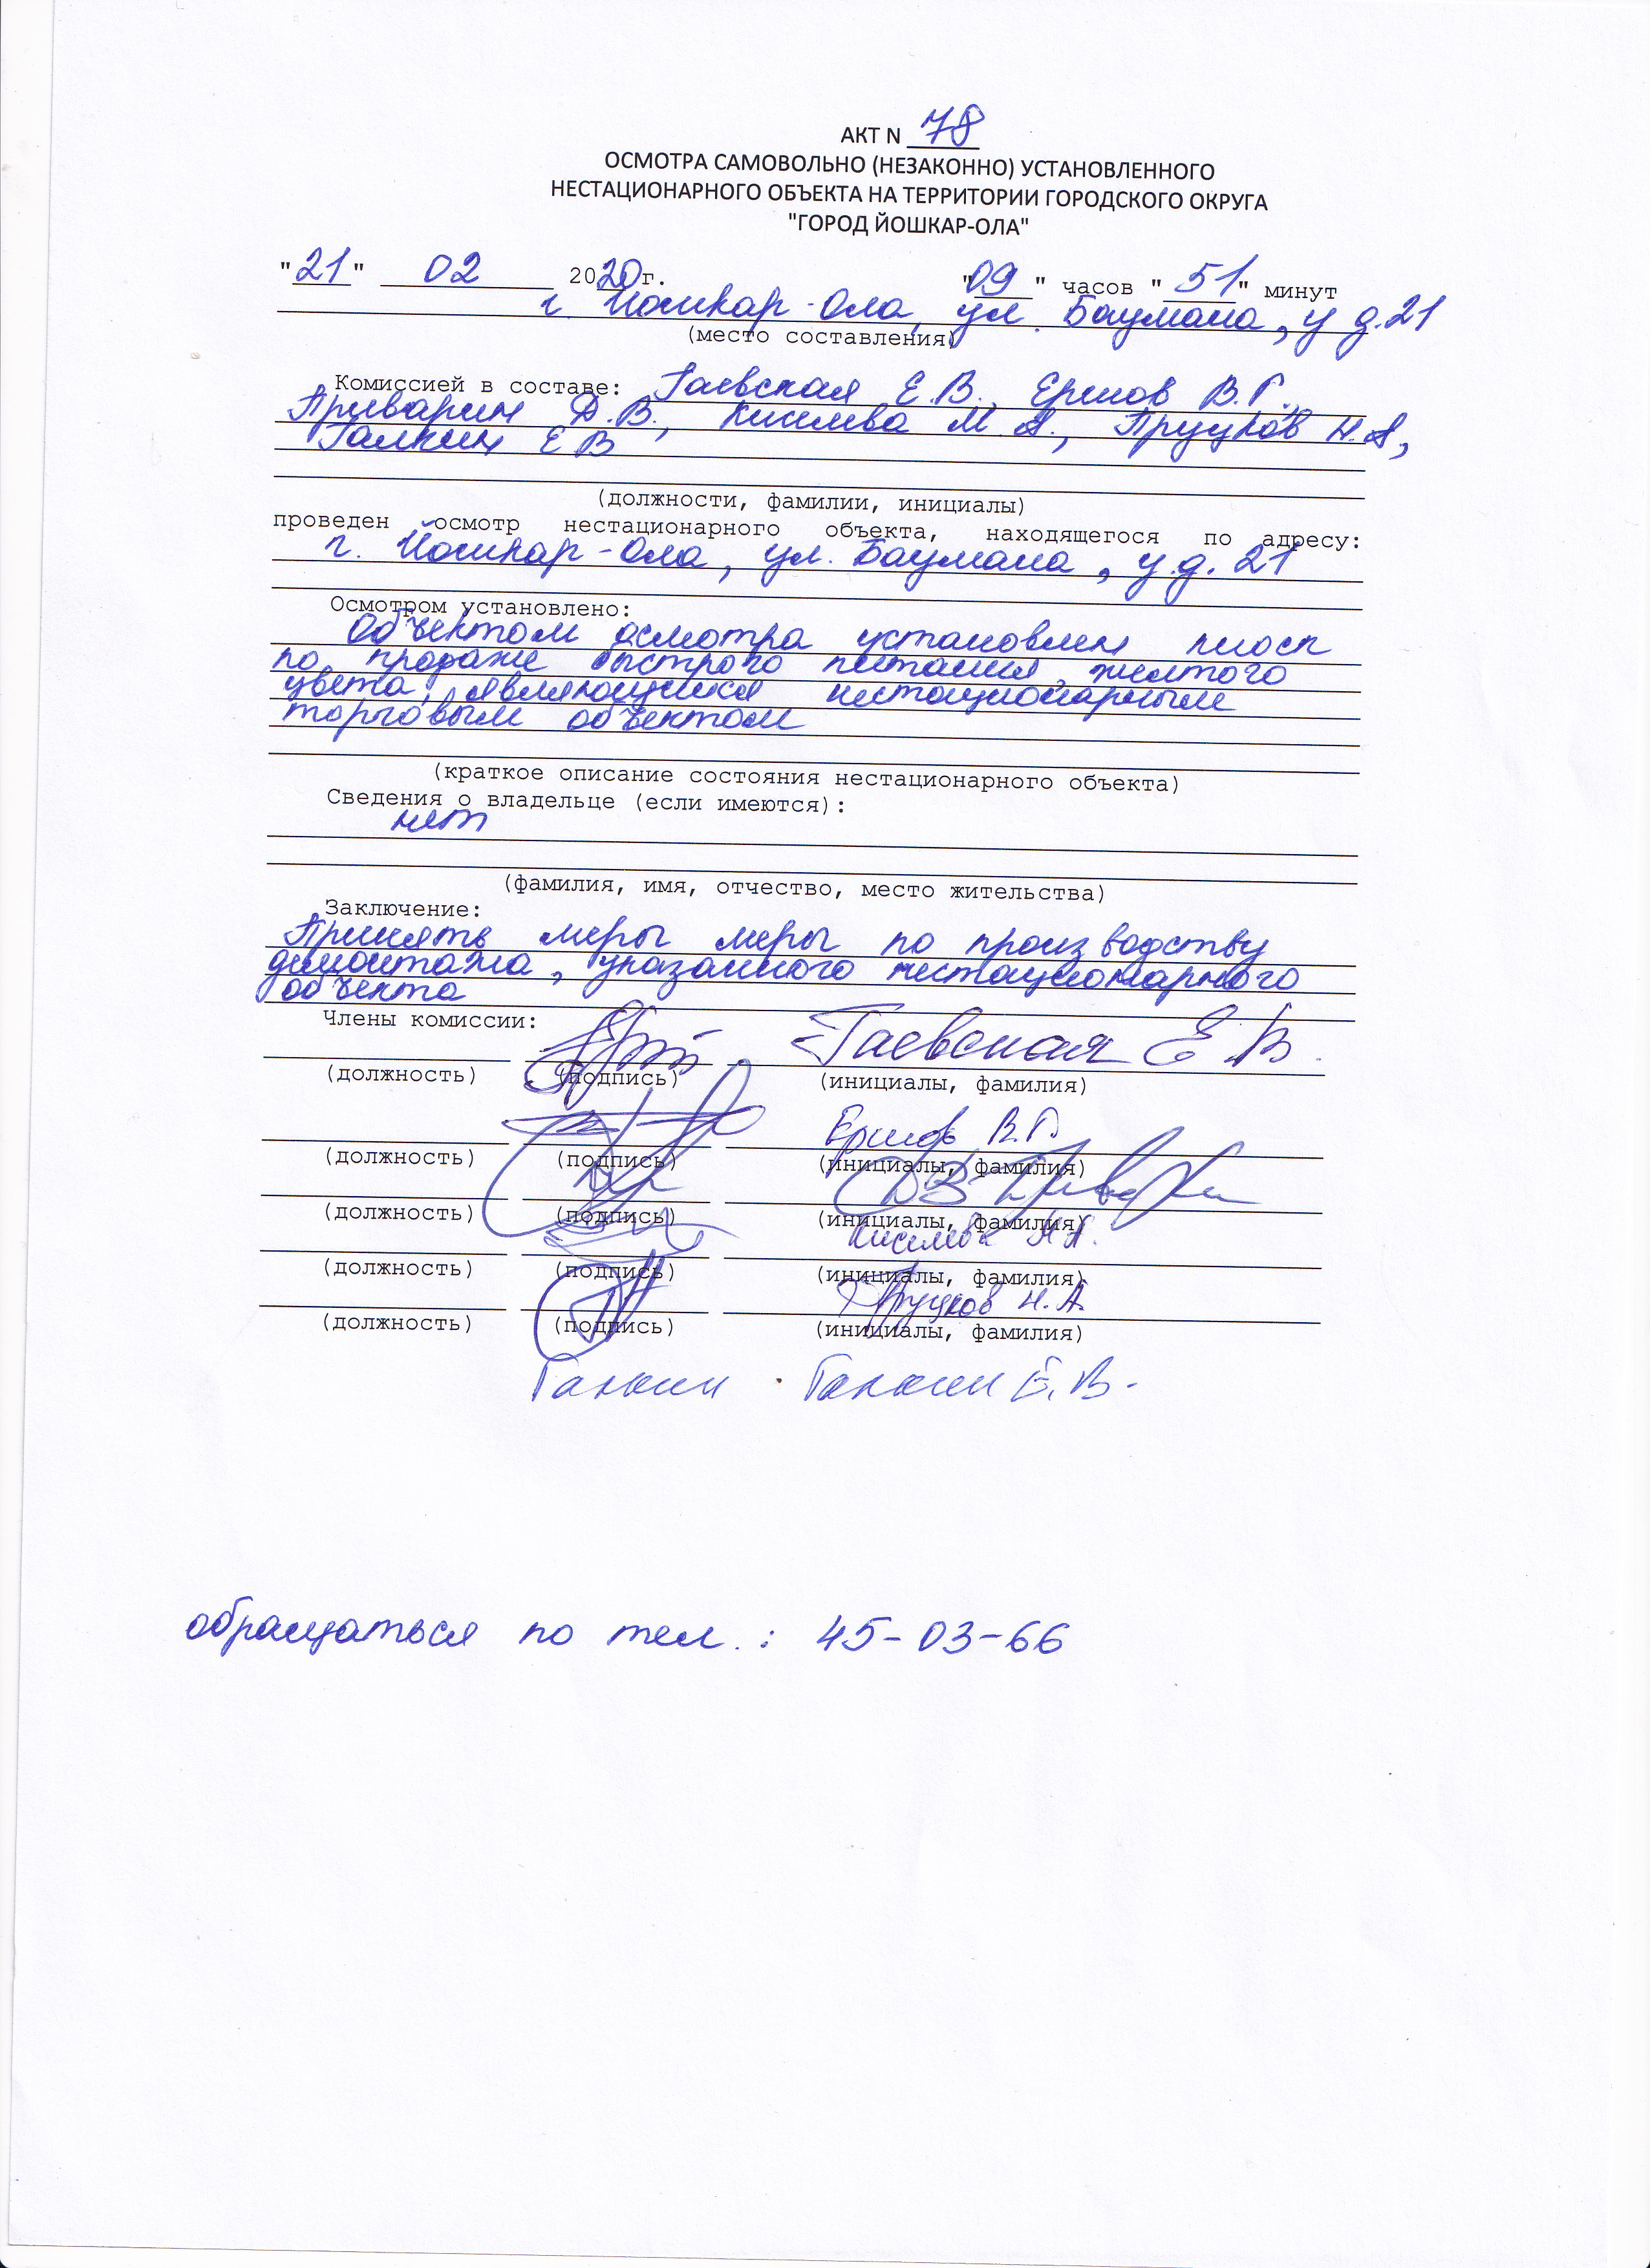 АКТ N 78
ОСМОТРА САМОВОЛЬНО (НЕЗАКОННО) УСТАНОВЛЕННОГО
НЕСТАЦИОНАРНОГО ОБЪЕКТА НА ТЕРРИТОРИИ ГОРОДСКОГО ОКРУГА
"ГОРОД ЙОШКАР-ОЛА"
"21" 02 2020г. "09" часов "51" минут
г. Йошкар-Ола, ул. Баумана, у д.21
(место составления)
Комиссией в составе: Гаевская Е.В., Ершов В.Г.,
Приварин Д.В., Киселева М.А., Пруцков Н.А.,
Галкин Е В
(должности, фамилии, инициалы)
проведен осмотр нестационарного объекта, находящегося по адресу:
г. Йошкар-Ола, ул. Баумана, у д. 21
Осмотром установлено:
Объектом осмотра установлен киоск
по продаже быстрого питания, желтого
цвета, являющийся нестационарным
торговым объектом
(краткое описание состояния нестационарного объекта)
Сведения о владельце (если имеются):
нет
(фамилия, имя, отчество, место жительства)
Заключение:
Принять меры меры по производству
демонтажа, указанного нестационарного
объекта
Члены комиссии:
Гаевская Е.В.
(должность) (подпись) (инициалы, фамилия)
Ершов В.Г.
(должность) (подпись) (инициалы, фамилия)
ДВ Приварин
(должность) (подпись) (инициалы, фамилия)
Киселева М.А.
(должность) (подпись) (инициалы, фамилия)
Пруцков Н.А.
(должность) (подпись) (инициалы, фамилия)
Галкин Галкин Е.В.
обращаться по тел.: 45-03-66